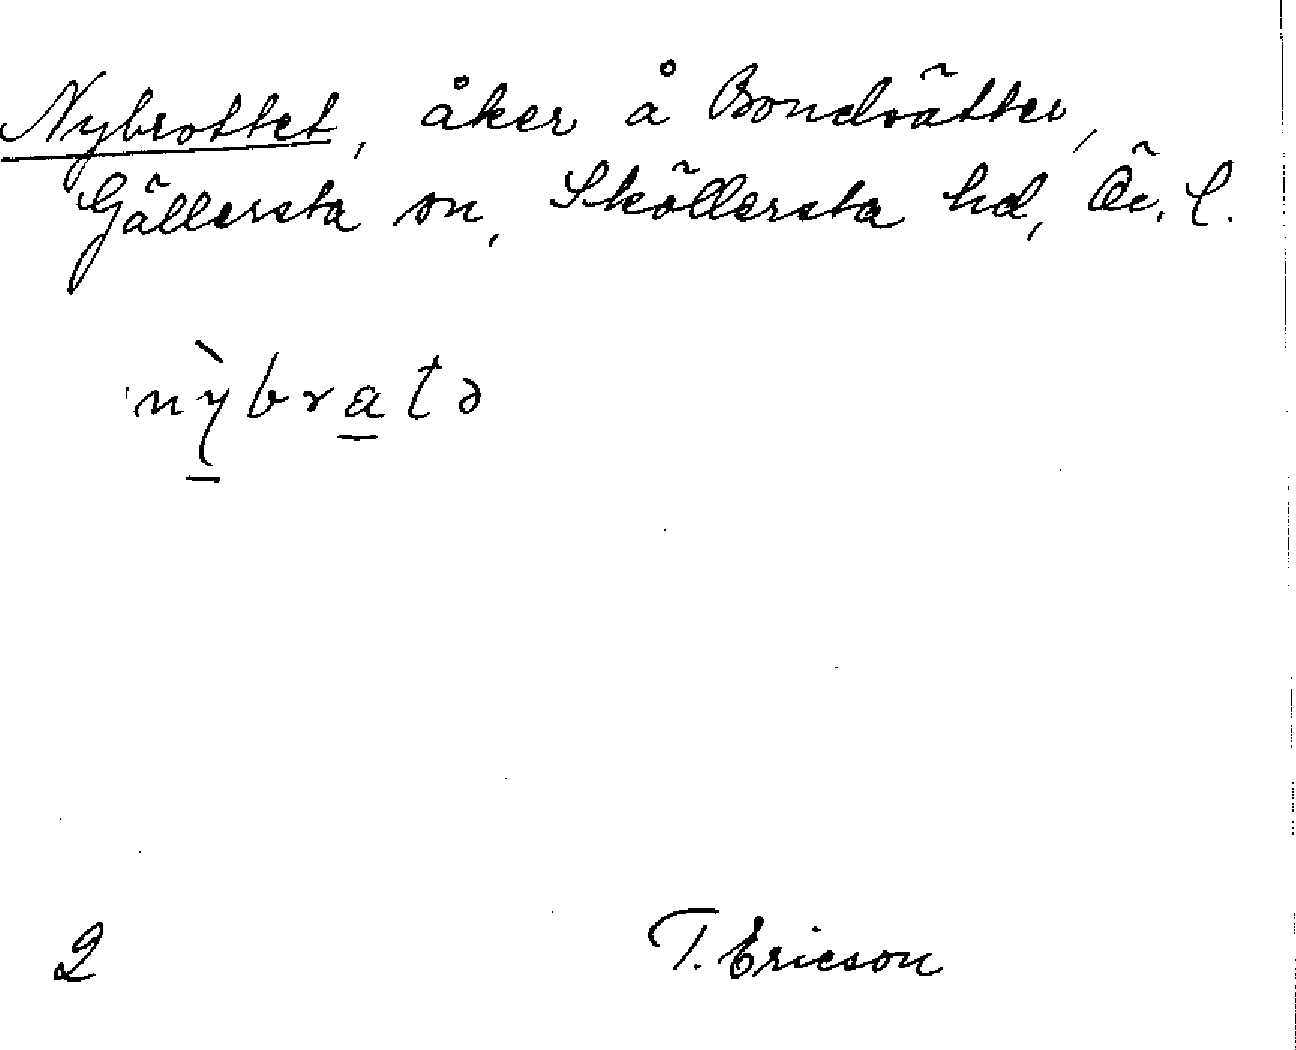 Nybrottet, åker å Bondsätter,
Gällersta sn, Sköllersta hd, Ö. l.
nỳbratə
2 T. Ericson